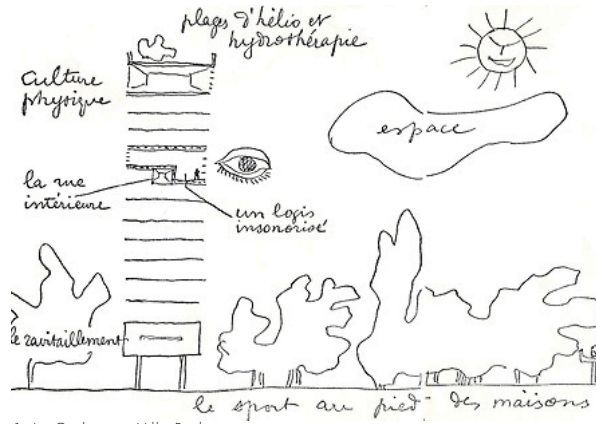 plages d'hélio et
hydrothérapie
Culture
physique
espace
la rue
intérieure
un logis
insonorisé
le ravitaillement
le sport au pied des maisons